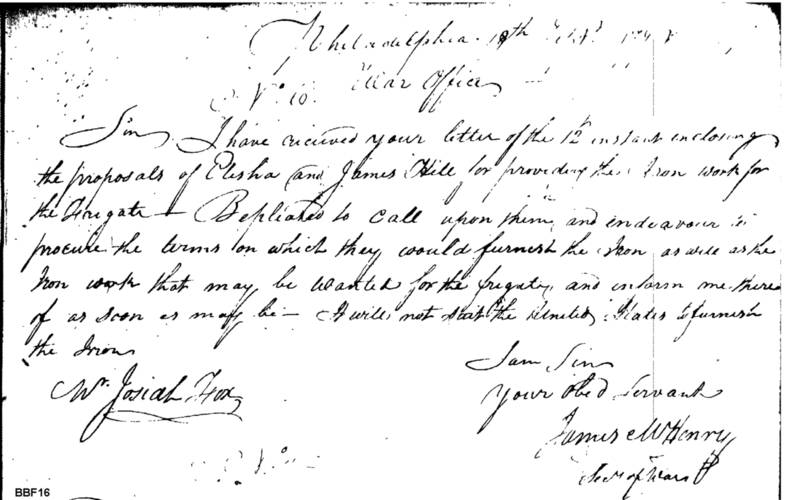 Philadelphia 18th
No. 10. War Office
Sir I have received your letter of the 12th instant enclosing
the proposals of Elisha and James Hill for providing the Iron work for
the Frigate — Be pleased to call upon them, and endeavour to
procure the terms on which they would furnish the Iron as well as the
Iron work that may be wanted for the frigate, and inform me there
of as soon as may be — It will not the United States to furnish
the Iron
I am Sir
Your Obed Servant
Mr. Josiah Fox
James McHenry
Secr of War
BBF16